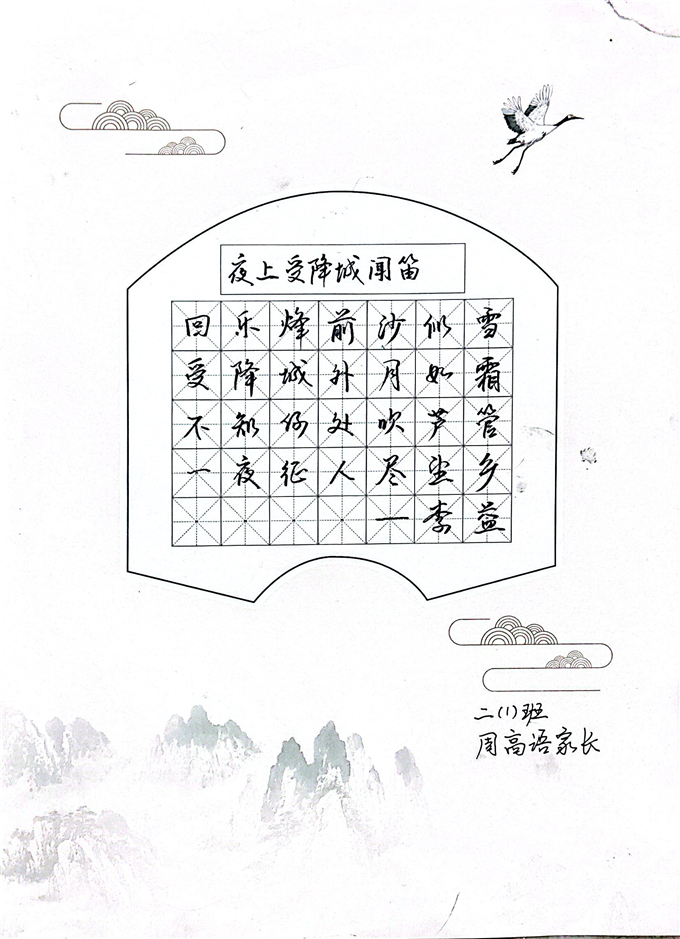 夜上受降城闻笛
回乐烽前沙似雪
受降城外月如霜
不知何处吹芦管
一夜征人尽望乡
—李益
二(1)班
周高语家长